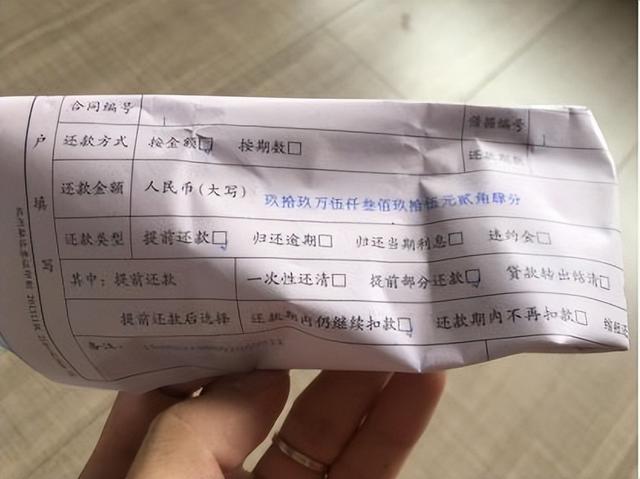 合同编号 借据编号
还款方式 按金额☐ 按期数☐ 还款期数
还款金额 人民币(大写) 玖拾玖万伍仟叁佰玖拾伍元贰角肆分
还款类型 提前还款☐ 归还逾期☐ 归还当期利息☐ 违约金☐
其中：提前还款 一次性还清☐ 提前部分还款☐ 贷款转出结清☐
提前还款后选择 还款期内仍继续扣款☐ 还款期内不再扣款☐
备注：
户填写